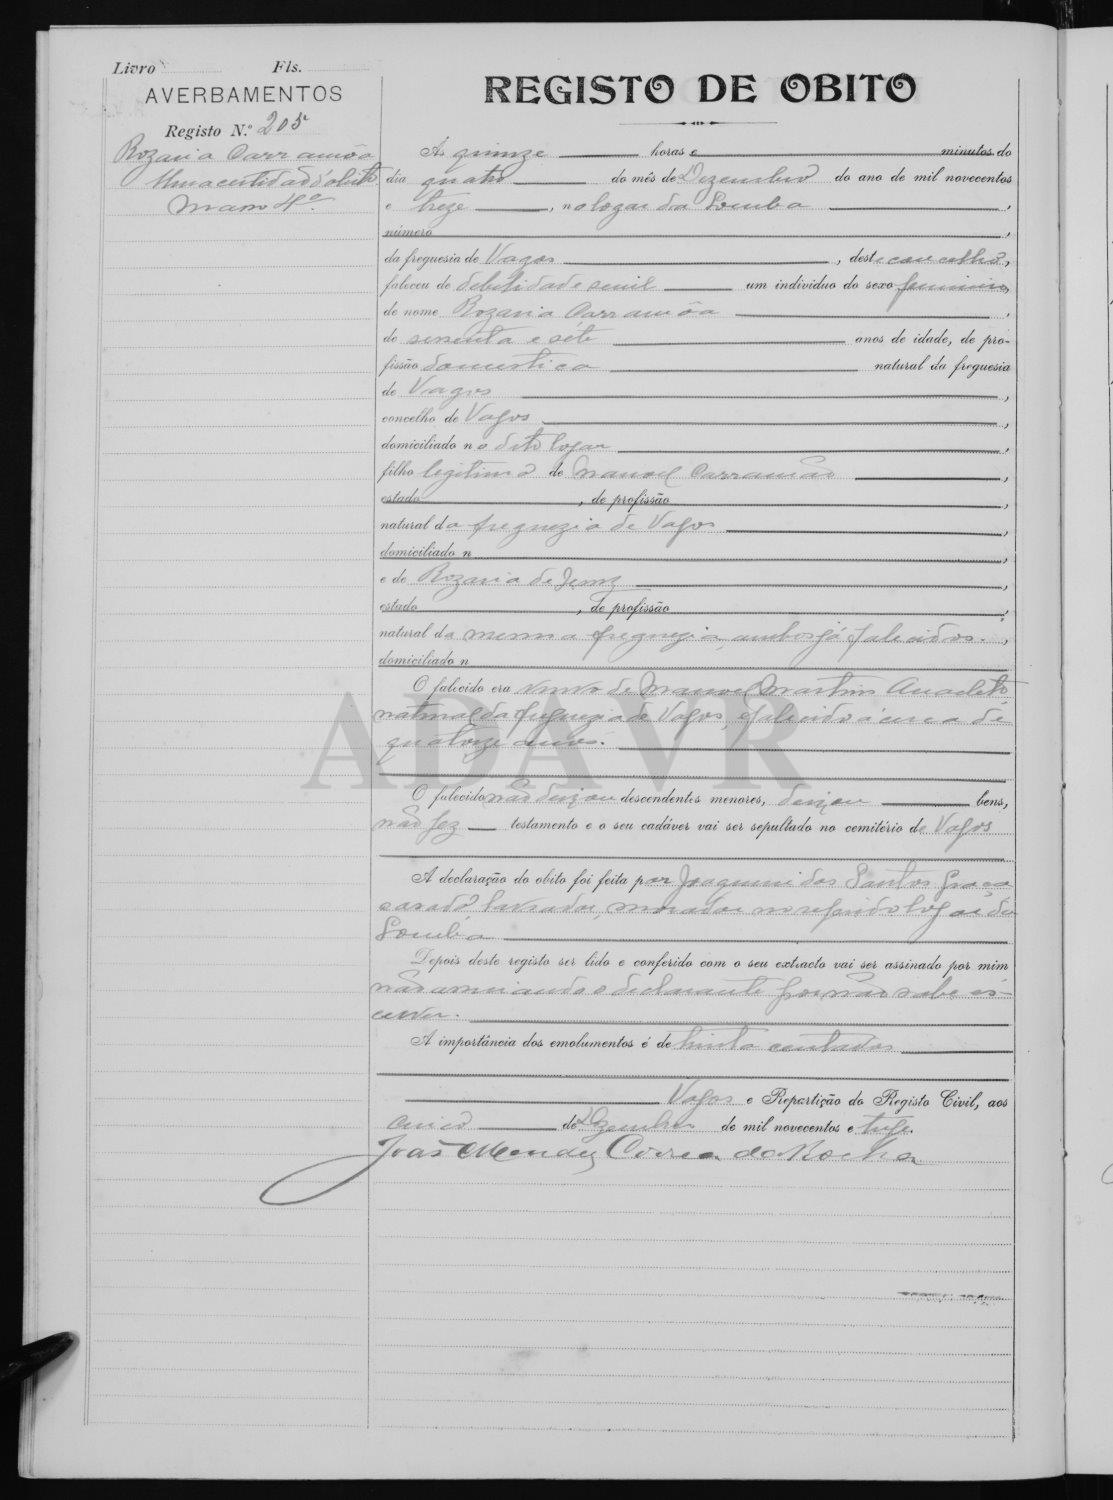 Livro Fls.
AVERBAMENTOS
Registo N.º 205
Rozaria Carramôa
Uma certidão d'obito
maço 4º
REGISTO DE OBITO
Ás quinze horas e minutos do
dia quatro do mês de Dezembro do ano de mil novecentos
e treze, no logar da Lomba,
número,
da freguesia de Vagos, deste concelho,
faleceu de debilidade senil um individuo do sexo feminino,
de nome Rozaria Carramôa,
de sessenta e séte anos de idade, de pro-
fissão domestica natural da freguesia
de Vagos,
concelho de Vagos,
domiciliado no dito logar,
filho legitima de Manoel Carramão,
estado, de profissão,
natural da freguezia de Vagos,
domiciliado n,
e de Rozaria de Jesus,
estado, de profissão,
natural da mesma freguezia, ambos já falecidos.,
domiciliado n
O falecido era viuva de Manoel Martins Anacleto
natural da freguezia de Vagos, falecido á cerca de
quatorze anos.
ADAVR
O falecido não deixou descendentes menores, deixou bens,
não fez testamento e o seu cadáver vai ser sepultado no cemitério de Vagos
A declaração do obito foi feita por Joaquim dos Santos Graça
casado, lavrador, morador no referido logar da
Lomba
Depois deste registo ser lido e conferido com o seu extracto vai ser assinado por mim
não assinando o declarante por não sabe es-
crever.
A importância dos emolumentos é de trinta centavos
Vagos e Repartição do Registo Civil, aos
cinco de Dezembro de mil novecentos e treze.
João Mendes Correa da Rocha